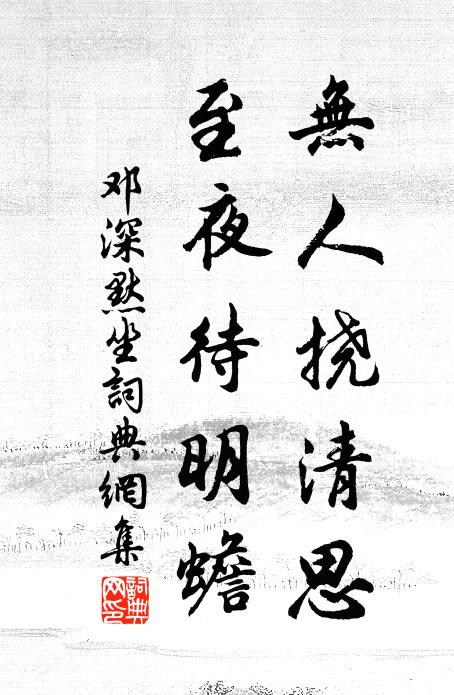 無人挠清思
至夜待明蟾
邓深默坐詞典網集
詞典網印